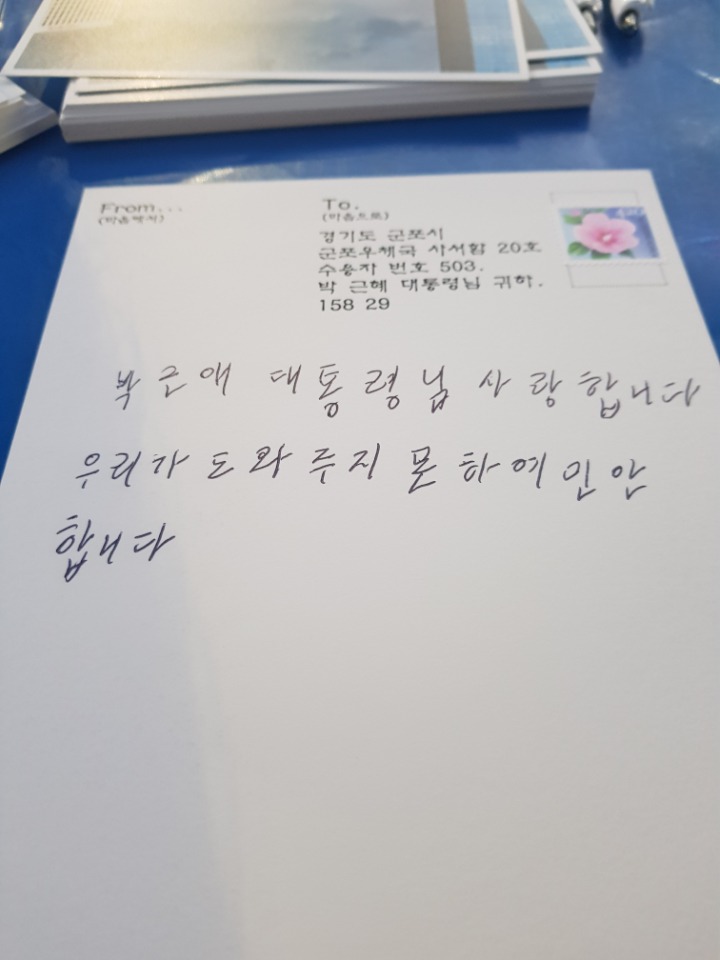 From...
(마음먹지)
To.
(마음으로)
경기도 군포시
군포우체국 사서함 20호
수용자 번호 503.
박 근혜 대통령님 귀하.
158 29
박근애 대통령님 사랑합니다
우리가 도와주지 못하여 미안
합니다